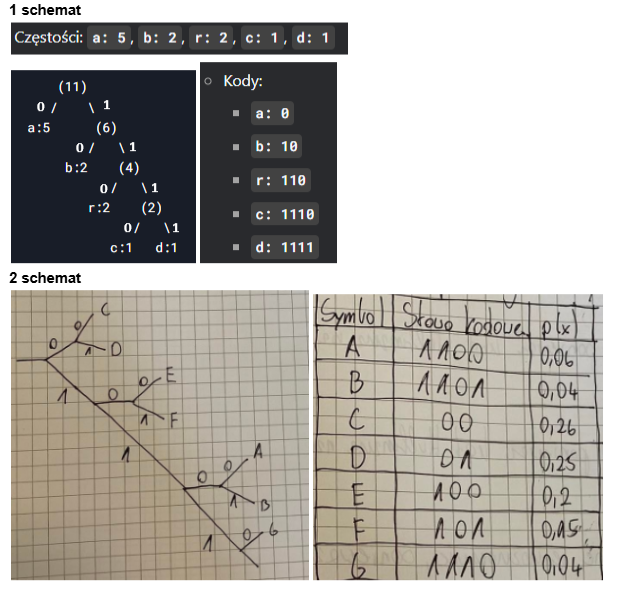 1 schemat
Częstości: a: 5, b: 2, r: 2, c: 1, d: 1
(11)
0 / \ 1
a:5 (6)
0 / \ 1
b:2 (4)
0 / \ 1
r:2 (2)
0/ \1
c:1 d:1
Kody:
a: 0
b: 10
r: 110
c: 1110
d: 1111
2 schemat
C
0
0
1 D
1
0
0 E
1 F
1
0
0 A
1 B
1
0 G
Symbol Słowo kodowe p(x)
A 1100 0,06
B 1101 0,04
C 00 0,26
D 01 0,25
E 100 0,2
F 101 0,15
G 1110 0,04